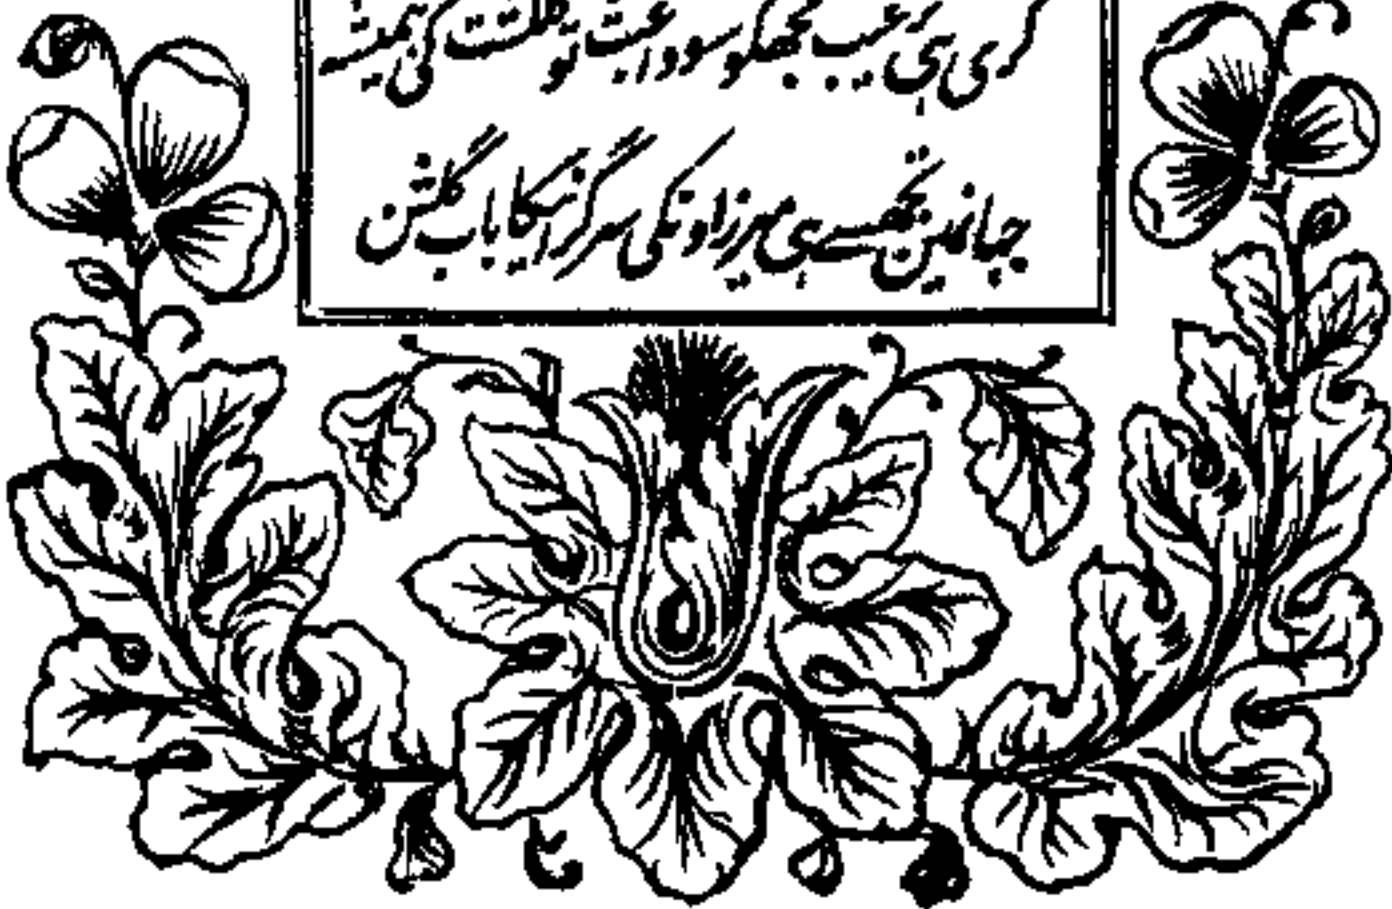 کری ہی عیب تجھکو سودا عبث تو گلگشت کی ہمیشہ
جہانمین تجھسے ہی میرزاونکی سرگز نیکا باب گلشن